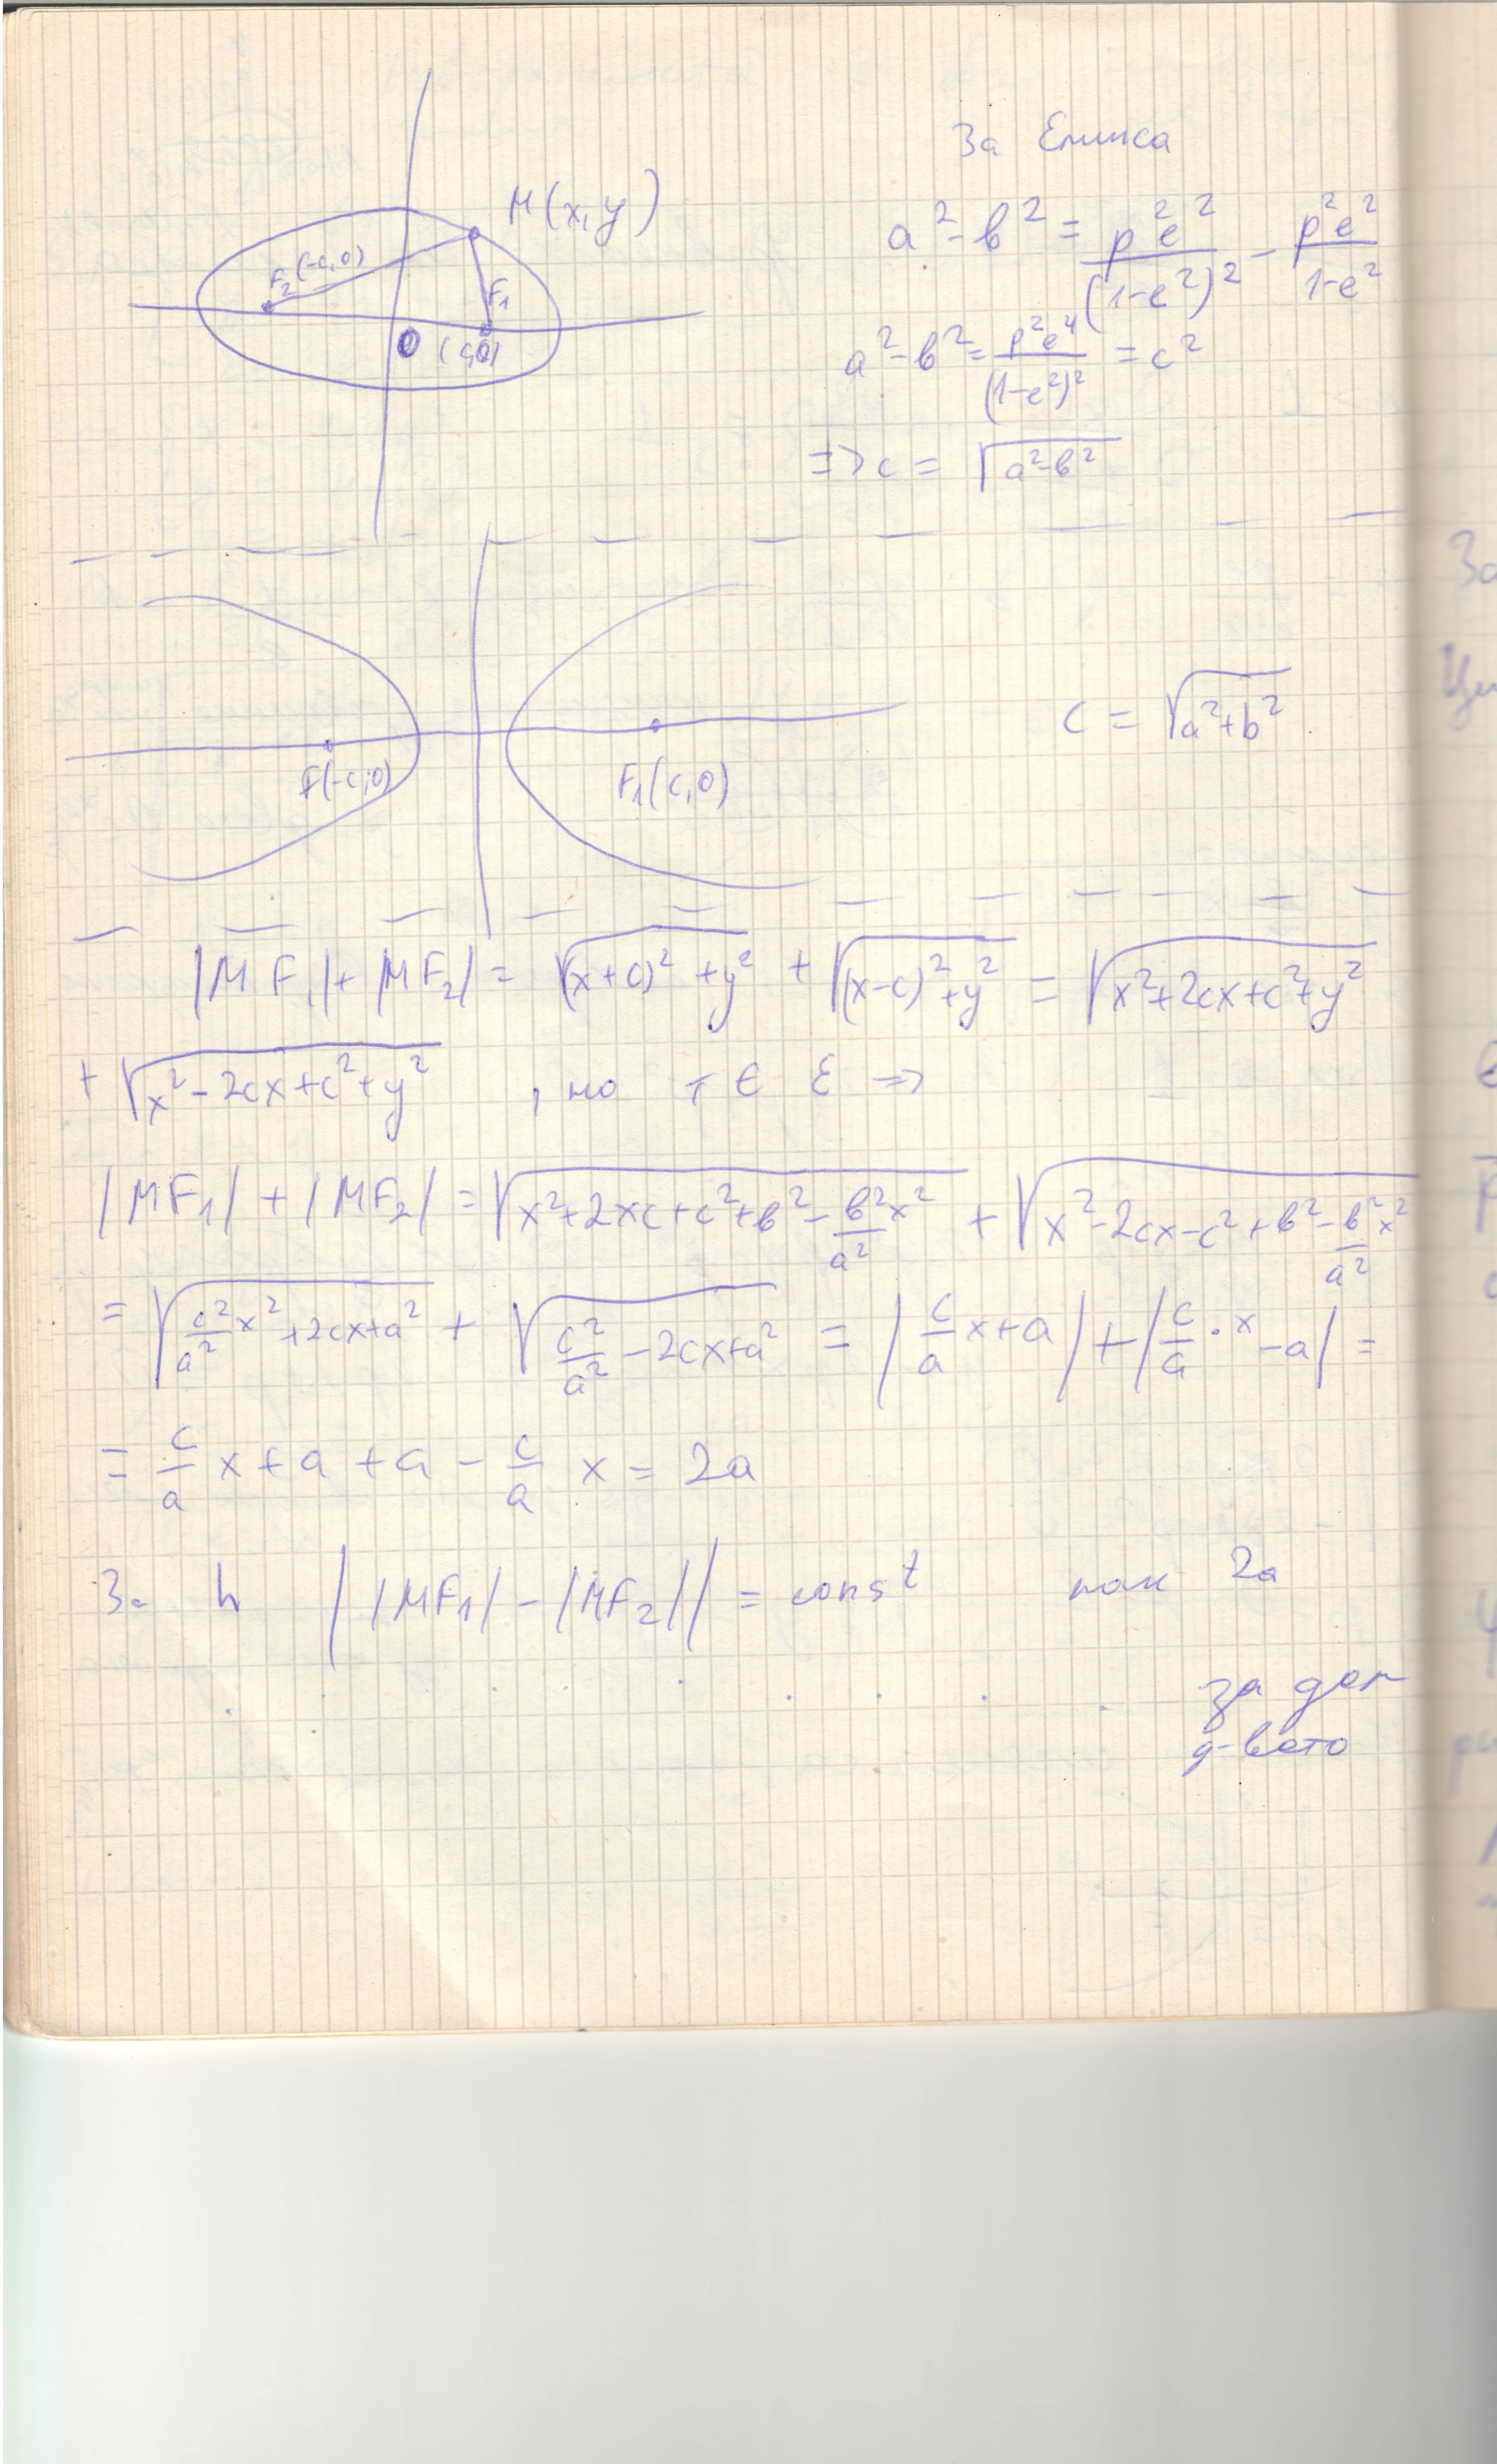 За Елипса
M(x, y)
F₂(-c, 0)
F₁
O (c, 0)
a² - b² = p²e²/(1-e²)² - p²e²/1-e²
a² - b² = p²e⁴/(1-e²)² = c²
=> c = √a²-b²
F(-c, 0)
F₁(c, 0)
c = √a²+b²
|MF₁| + |MF₂| = √(x+c)² + y² + √(x-c)² + y² = √x²+2cx+c²+y²
+ √x²-2cx+c²+y² , но т ∈ Ɛ =>
|MF₁| + |MF₂| = √x²+2xc+c²+b²-b²x²/a² + √x²-2cx-c²+b²-b²x²/a²
= √c²/a² x²+2cx+a² + √c²/a² -2cx+a² = |c/a x+a| + |c/a · x -a| =
= c/a x + a + a - c/a x = 2a
За h ||MF₁| - |MF₂|| = const пак 2a
за дом
д-вото